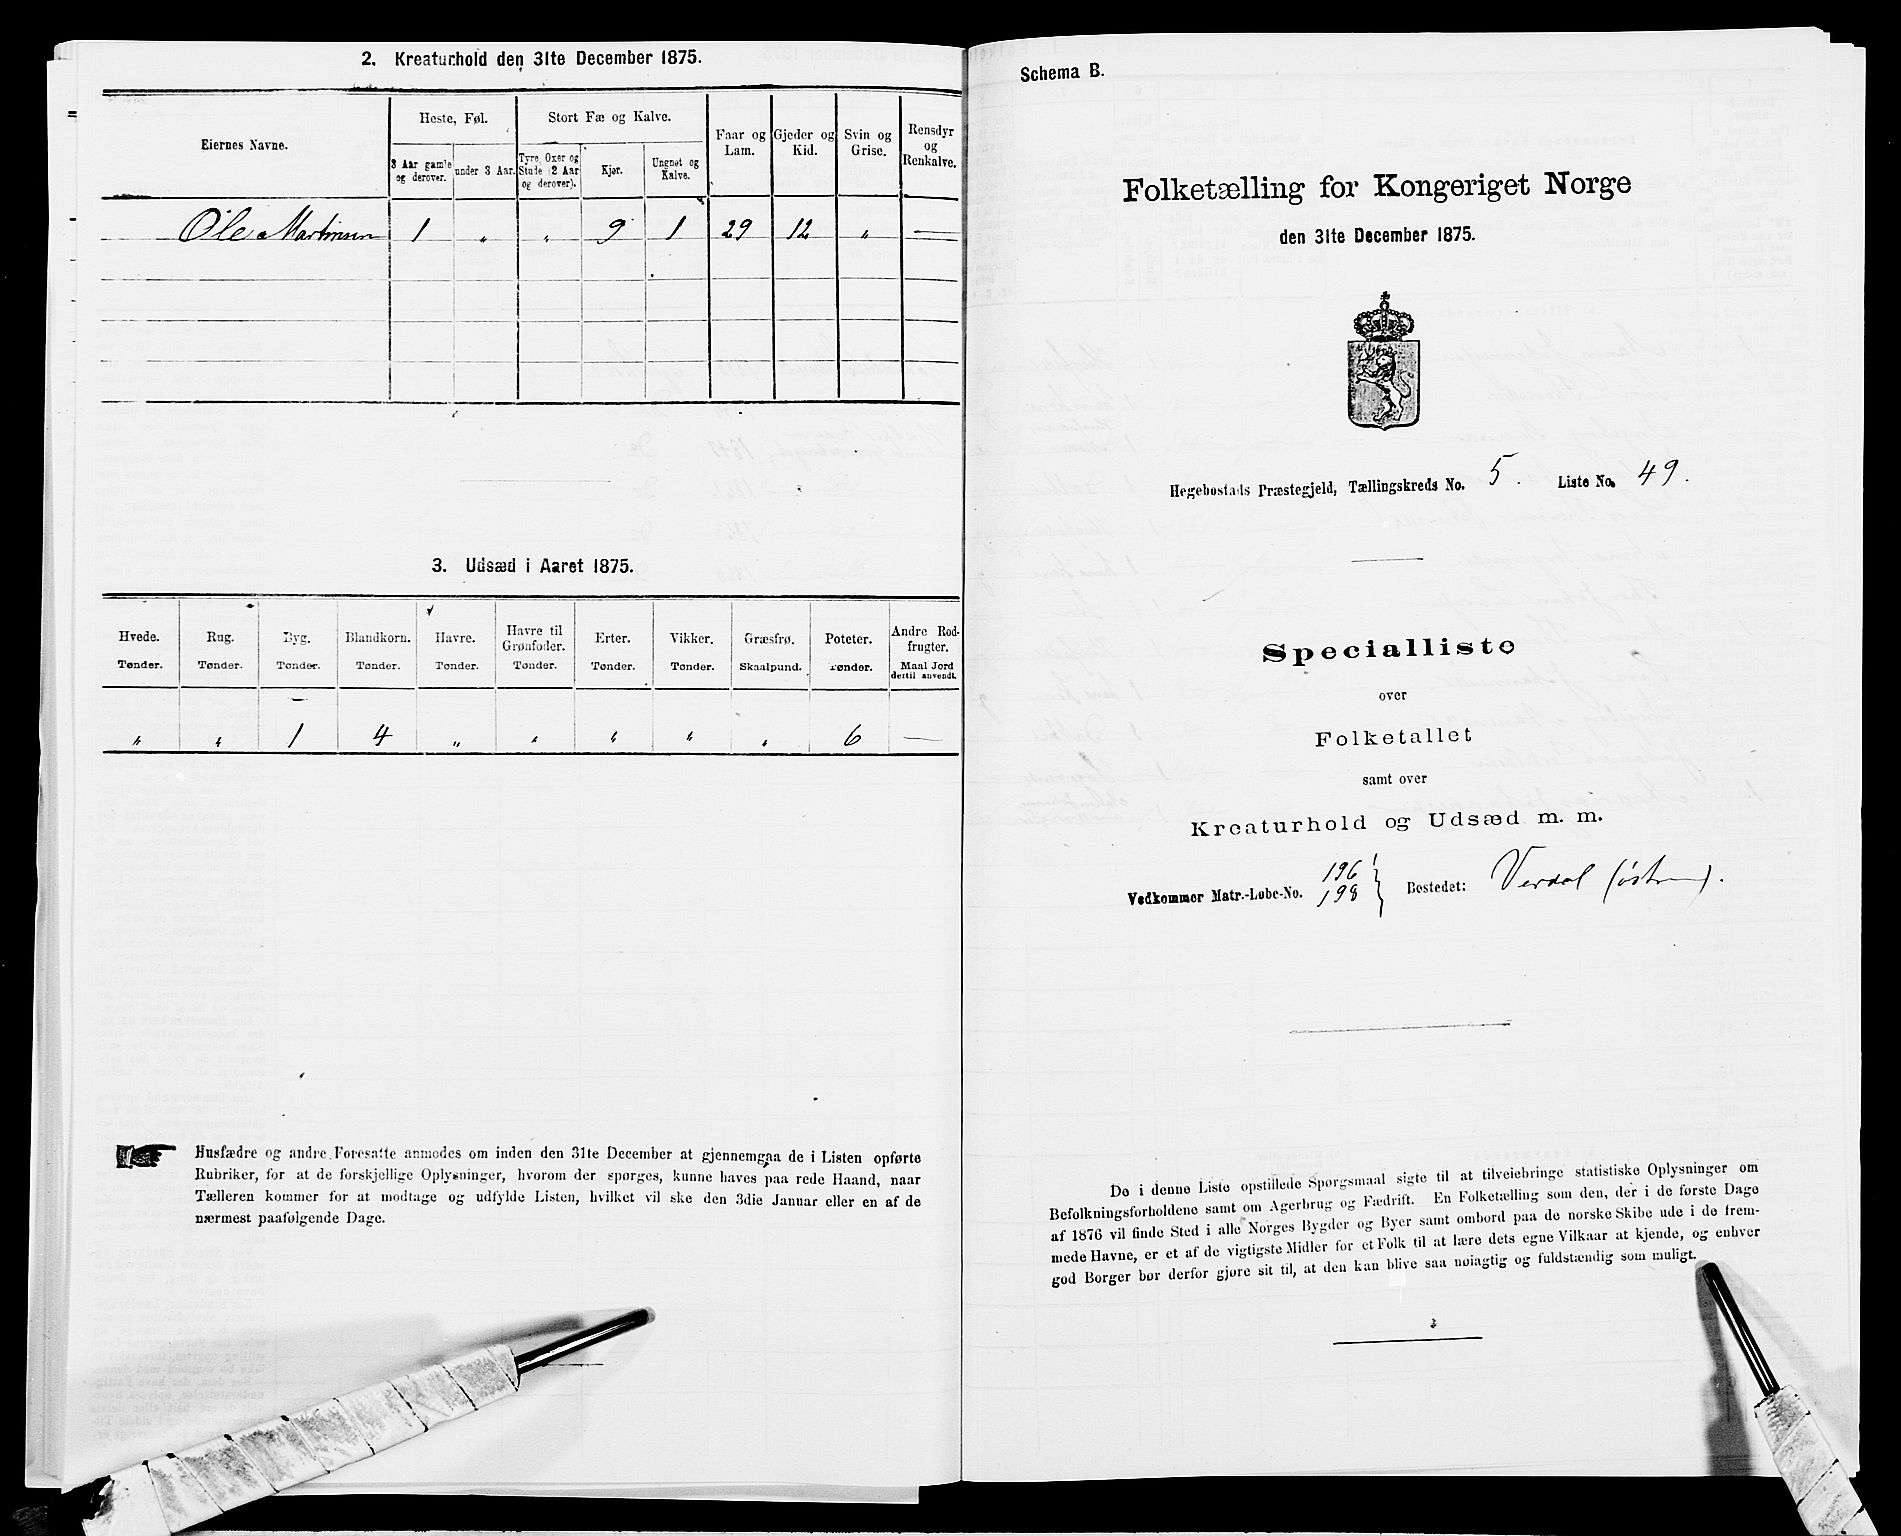 2. Kreaturhold den 31te December 1875.
Eiernes Navne.
Heste, Føl.
Stort Fæ og Kalve.
Faar og Lam.
Gjeder og Kid.
Svin og Grise.
Rensdyr og Renkalve.
3 Aar gamle og derover.
under 3 Aar.
Tyre, Oxer og Stude (2 Aar og derover).
Kjør.
Ungnet og Kalve.
Ole Martinsen 1 „ „ 9 1 29 12 „ —
3. Udsæd i Aaret 1875.
Hvede. Rug. Byg. Blandkorn. Havre. Havre til Grønfoder. Erter. Vikker. Græsfrø. Poteter. Andre Rodfrugter.
Tønder. Tønder. Tønder. Tønder. Tønder. Tønder. Tønder. Tønder. Skaalpund. Tønder. Maal Jord dertil anvendt.
„ „ 1 4 „ „ „ „ „ 6 —
Husfædre og andre Foresatte anmodes om inden den 31te December at gjennemgaa de i Listen opførte
Rubriker, for at de forskjellige Oplysninger, hvorom der spørges, kunne haves paa rede Haand, naar
Tælleren kommer for at modtage og udfylde Listen, hvilket vil ske den 3die Januar eller en af de
nærmest paafølgende Dage.
Schema B.
Folketælling for Kongeriget Norge
den 31te December 1875.
Hegebostads Præstegjeld, Tællingskreds No. 5. Liste No. 49.
Specialliste
over
Folketallet
samt over
Kreaturhold og Udsæd m. m.
Vedkommer Matr.-Løbe-No. 196 198 } Bostedet: Verdal (østre).
De i denne Liste opstillede Spørgsmaal sigte til at tilveiebringe statistiske Oplysninger om
Befolkningsforholdene samt om Agerbrug og Fædrift. En Folketælling som den, der i de første Dage
af 1876 vil finde Sted i alle Norges Bygder og Byer samt ombord paa de norske Skibe ude i de frem-
mede Havne, er et af de vigtigste Midler for et Folk til at lære dets egne Vilkaar at kjende, og enhver
god Borger bør derfor gjøre sit til, at den kan blive saa nøiagtig og fuldstændig som muligt.